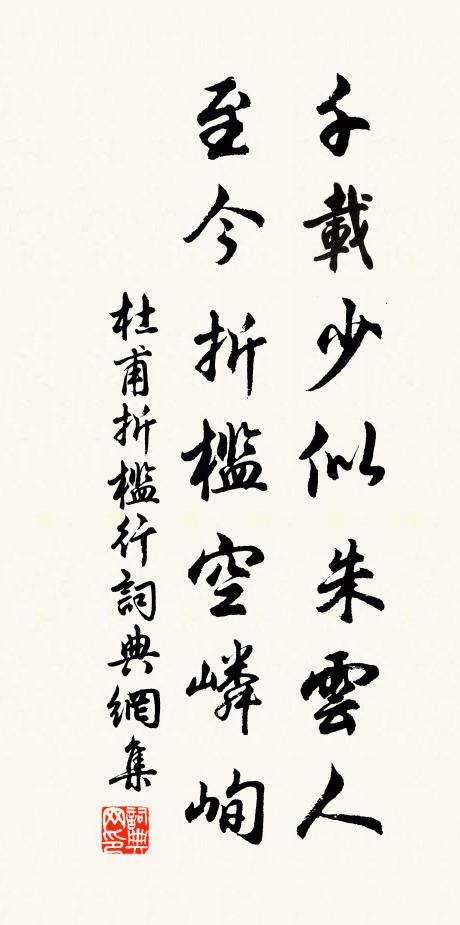 千載少似朱雲人
至今折檻空嶙峋
杜甫折檻行詞典網集
詞典网印